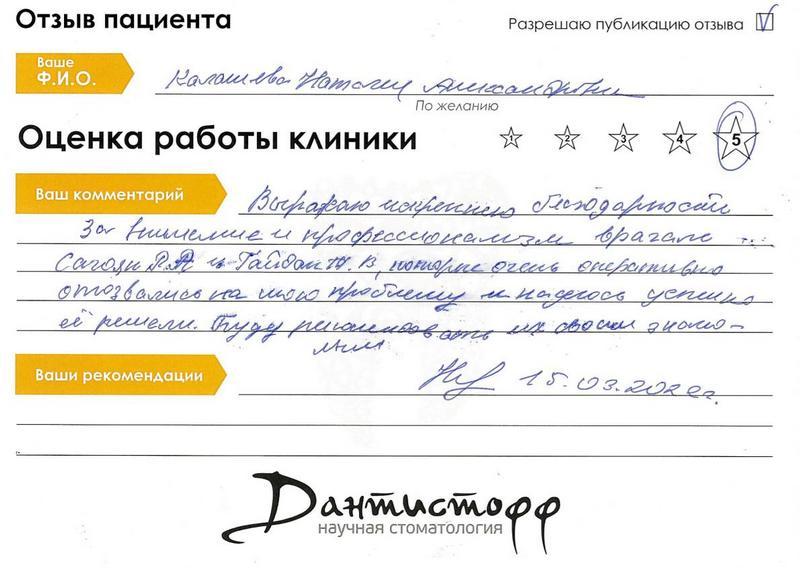 Отзыв пациента
Разрешаю публикацию отзыва
Ваше
Ф.И.О.
Наталия Александровна
По желанию
Оценка работы клиники
1 2 3 4 5
Ваш комментарий
Выражаю искреннюю благодарности
за внимание и профессионализм врачам
и Гайдан Н. В, которые очень оперативно
отозвались на мою проблему и надеюсь успешно
её решели. Буду рекомендовать их своим знако-
мым
Ваши рекомендации
15.03.202 г.
Дантистофф
научная стоматология